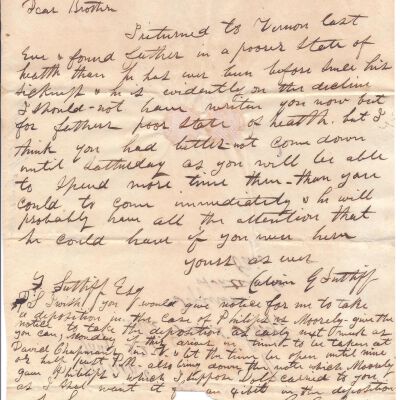 Dear Brother
I returned to Vernon last
Eve & found father in a poorer State of
health than he has ever been before since his
sickness & he is evidently on the decline
I should not have written you now but
for fathers poor state of health. but I
think you had better not come down
until Satturday as you will be able
to spend more time then than you
could to come immediately & he will
probably have all the attention that
he could have if you were here
yours as ever
Calvin G Sutliff
Sutliff Esq
PS I wish you would give notice for me to take
a deposition in the case of Philips vs Moorely give the
notice to take the deposition as early next week as
you can, Monday if this arives in time to be taken at
David Chapmans in & let the time be open until nine
or half past P.M. also bring down the note which Moorely
gave Phillips & which I suppose carried to you
as I shall want it in the deposition